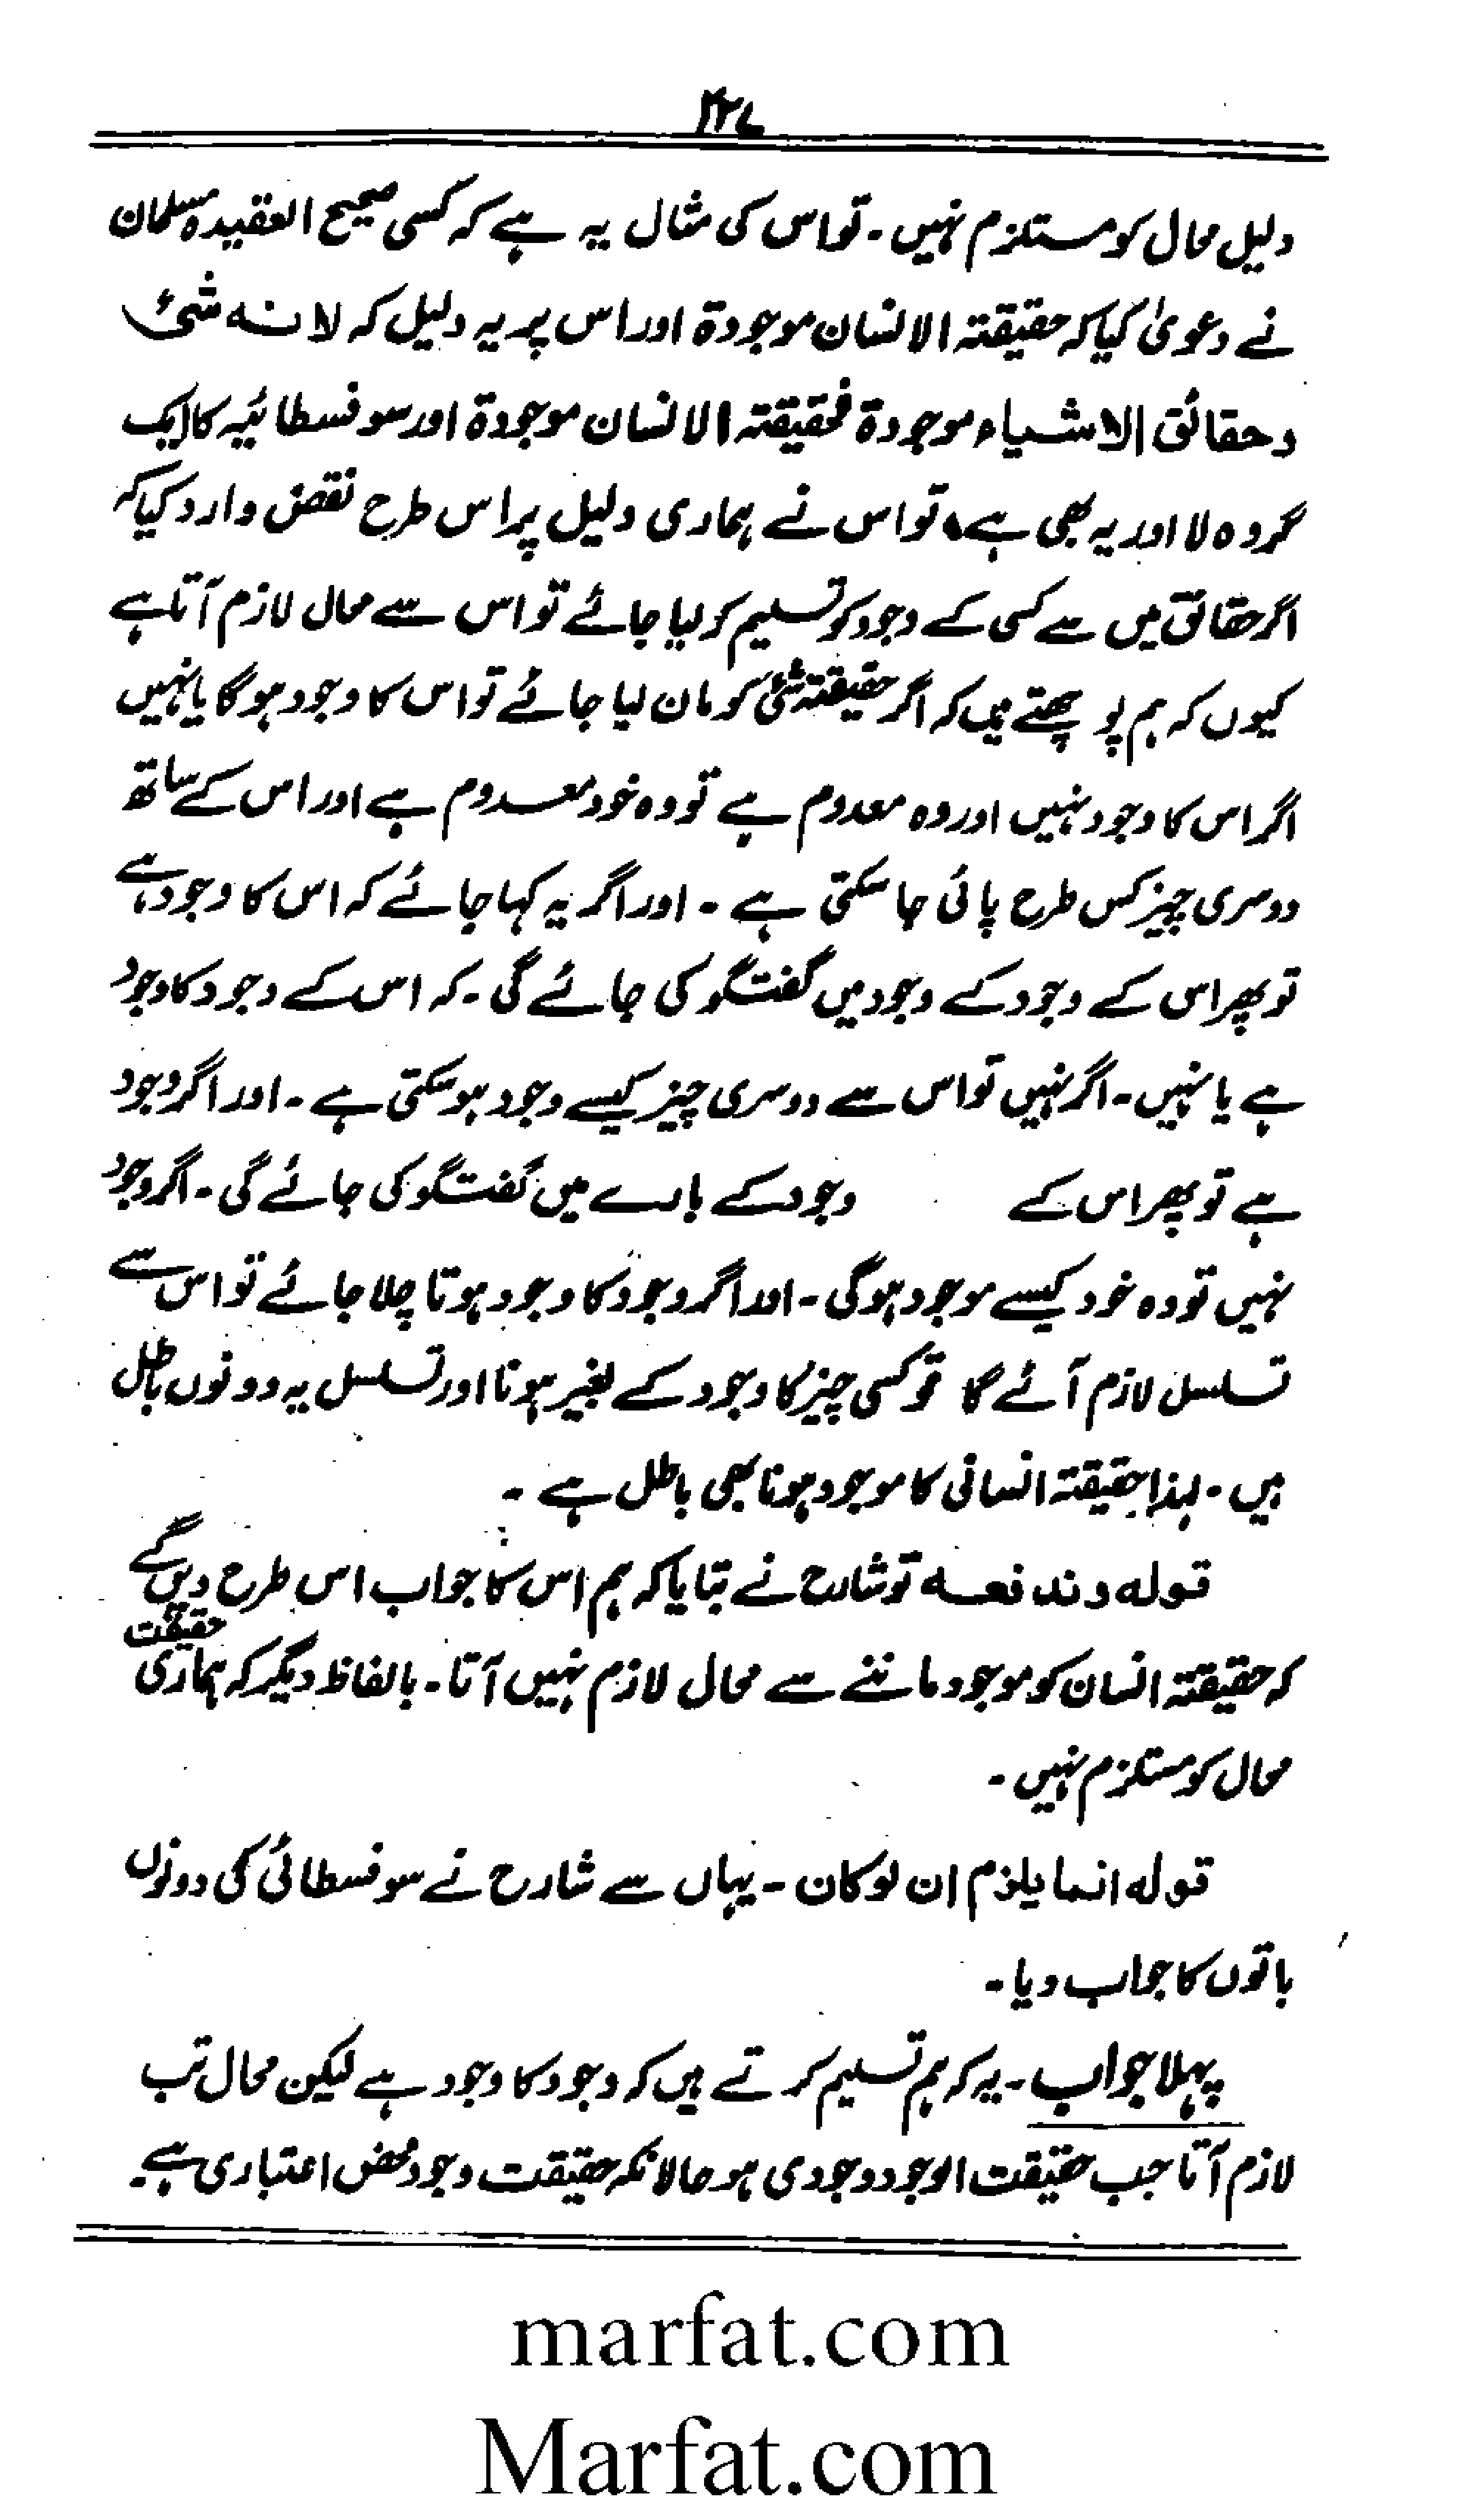 ۲۲۷
دلیل محال کو مستلزم نہیں ۔ تو اس کی مثال یہ ہے کہ کسی صحیح العقیدہ مسلمان
نے دعویٰ کیا کہ حقیقتہ الانسان موجودۃ اور اس پر یہ دلیل کہ لانہ شئ
وحقائق الاشیاء موجودۃ فحقیقتہ الانسان موجودۃ اور سوفسطائیہ کا ایک
گروہ لا ادریہ بھی ہے، تو اس نے ہماری دلیل پر اس طرح نقض وارد کیا کہ
اگر حقائق میں سے کسی کے وجود کو تسلیم کر لیا جائے تو اس سے محال لازم آتا ہے
کیوں کہ ہم پوچھتے ہیں کہ اگر حقیقتہ شئ کو مان لیا جائے تو اس کا وجود ہوگا یا نہیں
اگر اس کا وجود نہیں اور وہ معدوم ہے تو وہ خود معدوم ہے اور اس کے ساتھ
دوسری چیز کس طرح پائی جا سکتی ہے ۔ اور اگر یہ کہا جائے کہ اس کا وجود ہے
تو پھر اس کے وجود کے وجود میں گفتگو کی جائے گی ۔ کہ اس کے وجود کا وجود
ہے یا نہیں ۔ اگر نہیں تو اس سے دوسری چیز کیسے وجود ہو سکتی ہے ۔ اور اگر وجود
ہے تو پھر اس کے وجود کے بارے میں گفتگو کی جائے گی ۔ اگر وجود
نہیں تو وہ خود کیسے موجود ہوگی ۔ اور اگر وجود کا وجود ہوتا چلا جائے تو اس سے
تسلسل لازم آئے گا تو کسی چیز کا وجود کے بغیر ہونا اور تسلسل یہ دونوں باطل
ہیں ۔ لہذا حقیقتہ انسانی کا موجود ہونا بھی باطل ہے ۔
قولہ وندفعہ تو شارح نے بتایا کہ ہم اس کا جواب اس طرح دیں گے
کہ حقیقتہ انسان کو موجود ماننے سے محال لازم نہیں آتا ۔ بالفاظ دیگر کہ ہماری حقیقت
محال کو مستلزم نہیں ۔
قولہ انما یلزم ان لوکان ۔ یہاں سے شارح نے سوفسطائی کی دونوں
باتوں کا جواب دیا ۔
پہلا جواب ۔ یہ کہ ہم تسلیم کرتے ہیں کہ وجود کا وجود ہے لیکن محال تب
لازم آتا جب حقیقت الوجود وجودی ہو حالانکہ حقیقت وجود محض اعتباری ہے ۔
marfat.com
Marfat.com